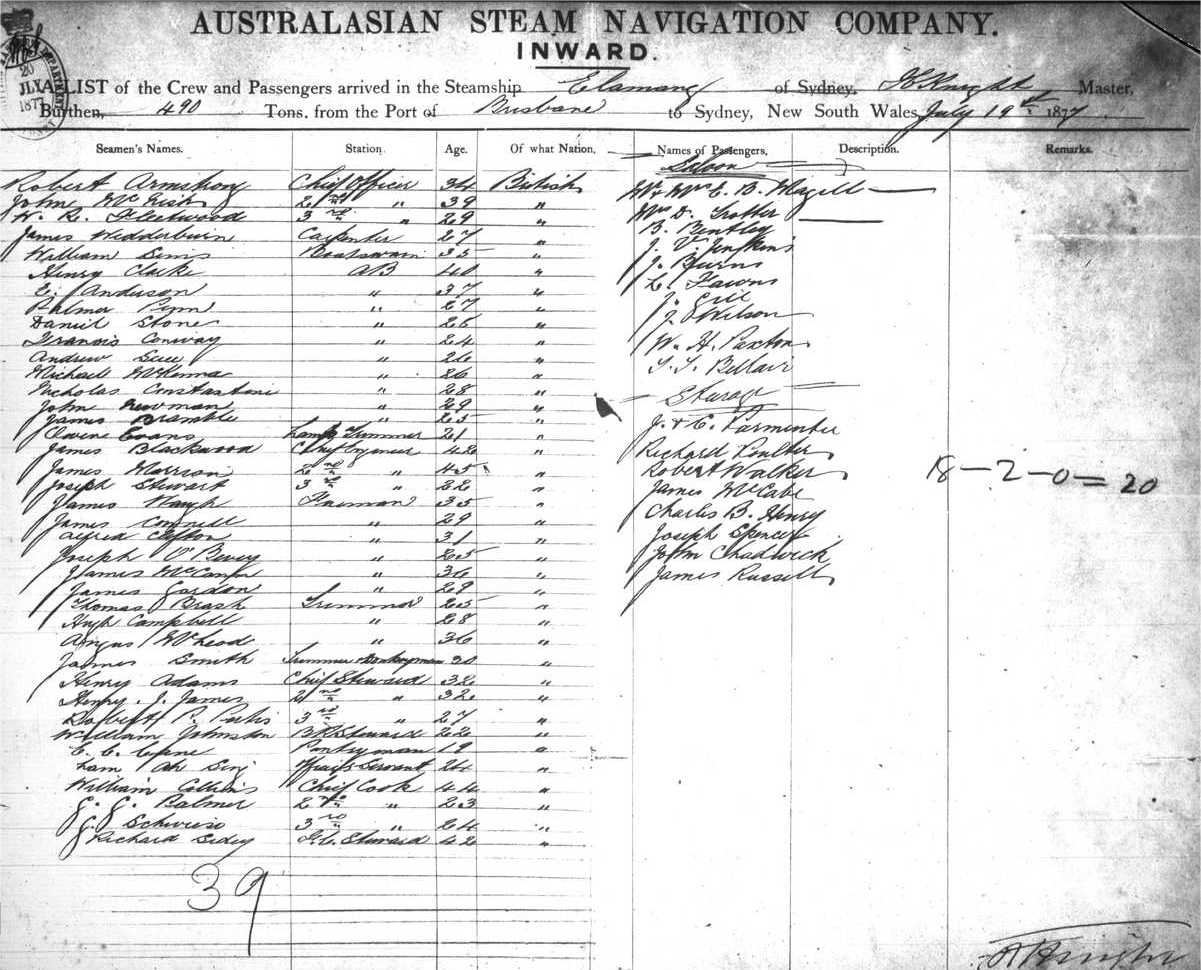 AUSTRALASIAN STEAM NAVIGATION COMPANY.
INWARD.
20
JLY
1877
A LIST of the Crew and Passengers arrived in the Steamship Elamang of Sydney, Knight Master,
Burthen, 490 Tons, from the Port of Brisbane to Sydney, New South Wales, July 19th 1877
Seamen's Names. Station. Age. Of what Nation. Names of Passengers. Description. Remarks.
Saloon
Robert Armstrong Chief Officer 34 British
John McLish 2nd " 39 "
W. R. Fleetwood 3rd " 29 "
James Widderburn Carpenter 27 "
William Sims Boatswain 35 "
Henry Clarke AB 40 "
E. Anderson " 37 "
Palmer Pym " 27 "
Daniel Stone " 26 "
Francis Conway " 24 "
Andrew " 26 "
Michael McKenna " 26 "
Nicholas Constantine " 28 "
John Newman " 29 "
James Bramble " 25 "
Owen Evans Lamp Trimmer 21 "
James Blackwood Chief Engineer 42 "
James Morrison 2nd " 45 "
Joseph Stewart 3rd " 22 "
James Waugh Fireman 35 "
James Connell " 29 "
Alfred Clifton " 31 "
Joseph " 25 "
James " 36 "
James Gordon " 29 "
Thomas Brash Trimmer 25 "
Hugh Campbell " 28 "
Angus McLeod " 36 "
James Smith Trimmer & Donkeyman 30 "
Henry Adams Chief Steward 32 "
Henry J. James 2nd " 32 "
Robert P. 3rd " 27 "
William Johnston BR Steward 22 "
E. C. Pantryman 19 "
Lam Ah Sing Officers Servant 24 "
William Collins Chief Cook 44 "
G. G. Palmer 2nd " 23 "
G. 3rd " 24 "
Richard Sidey F.C. Steward 42 "
39
Mr & Mrs E. B. Magill
Mrs D. Trotter
B. Bentley
J. V. Jenkins
J. Burns
L. Fawns
J. Gill
J. Wilson
W. H. Paxton
Bellair
Sturage
J. & C. Parmenter
Richard Poulter
Robert Walker
James McCabe
Charles B. Henry
Joseph Spencer
John Chadwick
James Russell
18-2-0=20
Knight